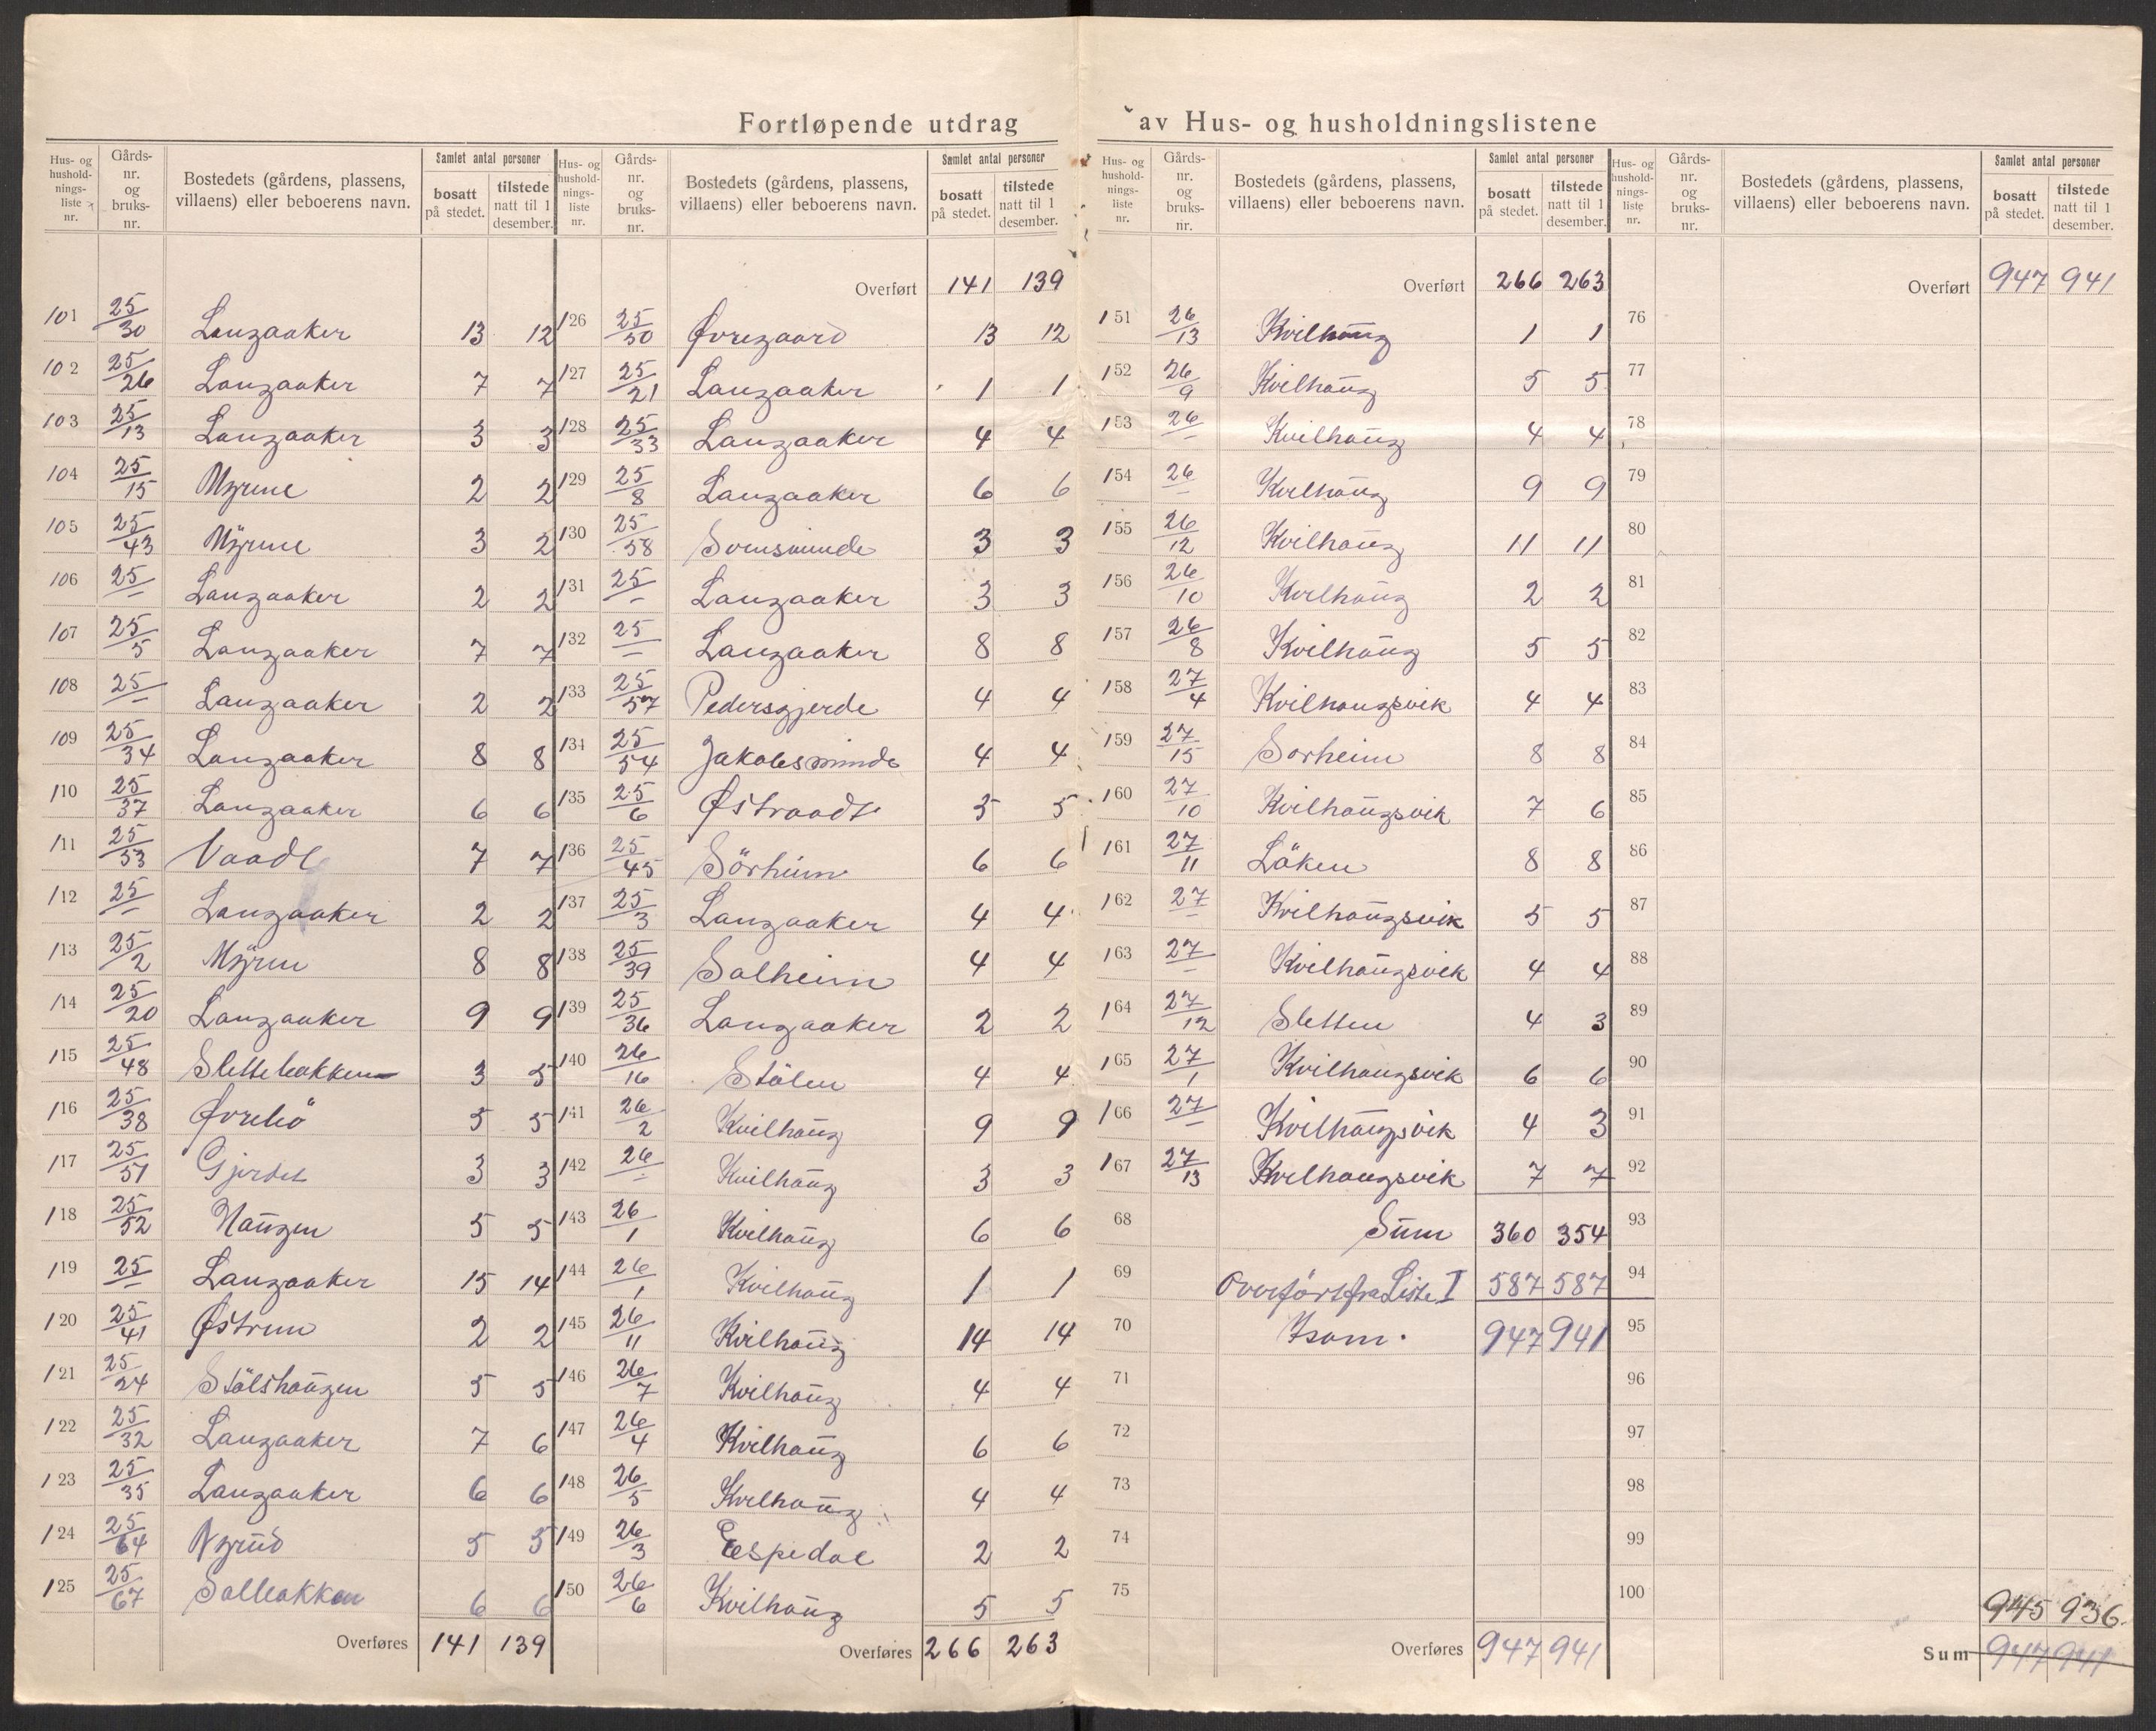 Fortløpende utdrag av Hus- og husholdningslistene
Hus- og husholdningsliste nr. | Gårds-nr. og bruks-nr. | Bostedets (gårdens, plassens, villaens) eller beboerens navn. | Samlet antal personer | bosatt på stedet. | tilstede natt til 1 desember.
101 25/30 Langaaker 13 12
102 25/26 Langaaker 7 7
103 25/13 Langaaker 3 3
104 25/15 Myrene 2 2
105 25/43 Myrene 3 2
106 25/– Langaaker 2 2
107 25/5 Langaaker 7 7
108 25/– Langaaker 2 2
109 25/34 Langaaker 8 8
110 25/37 Langaaker 6 6
111 25/53 Vaadl 7 7
112 25/– Langaaker 2 2
113 25/2 Myren 8 8
114 25/20 Langaaker 9 9
115 25/48 Slettebakken 3 5
116 25/38 Øvrebö 5 5
117 25/51 Gjerdet 3 3
118 25/52 Haugen 5 5
119 25/– Langaaker 15 14
120 25/41 Østrem 2 2
121 25/24 Stölshaugen 5 5
122 25/32 Langaaker 7 6
123 25/35 Langaaker 6 6
124 25/64 Nyrud 5 5
125 25/67 Solbakken 6 6
Overføres 141 139
Hus- og husholdningsliste nr. | Gårds-nr. og bruks-nr. | Bostedets (gårdens, plassens, villaens) eller beboerens navn. | Samlet antal personer | bosatt på stedet. | tilstede natt til 1 desember.
Overført 141 139
126 25/50 Øvregaard 13 12
127 25/21 Langaaker 1 1
128 25/33 Langaaker 4 4
129 25/8 Langaaker 6 6
130 25/58 Svensminde 3 3
131 25/– Langaaker 3 3
132 25/– Langaaker 8 8
133 25/57 Pedersgjerde 4 4
134 25/54 Jakobsminde 4 4
135 25/6 Østraadt 5 5
136 25/45 Sörheim 6 6
137 25/3 Langaaker 4 4
138 25/39 Solheim 4 4
139 25/36 Langaaker 2 2
140 26/16 Stölen 4 4
141 26/2 Kvilhaug 9 9
142 26/– Kvilhaug 3 3
143 26/1 Kvilhaug 6 6
144 26/1 Kvilhaug 1 1
145 26/11 Kvilhaug 14 14
146 26/7 Kvilhaug 4 4
147 26/4 Kvilhaug 6 6
148 26/5 Kvilhaug 4 4
149 26/3 Espedal 2 2
150 26/6 Kvilhaug 5 5
Overføres 266 263
Hus- og husholdningsliste nr. | Gårds-nr. og bruks-nr. | Bostedets (gårdens, plassens, villaens) eller beboerens navn. | Samlet antal personer | bosatt på stedet. | tilstede natt til 1 desember.
Overført 266 263
151 26/13 Kvilhaug 1 1
152 26/9 Kvilhaug 5 5
153 26/– Kvilhaug 4 4
154 26/– Kvilhaug 9 9
155 26/12 Kvilhaug 11 11
156 26/10 Kvilhaug 2 2
157 26/8 Kvilhaug 5 5
158 27/4 Kvilhaugsvik 4 4
159 27/15 Sorheim 8 8
160 27/10 Kvilhaugsvik 7 6
161 27/11 Löken 8 8
162 27/– Kvilhaugsvik 5 5
163 27/– Kvilhaugsvik 4 4
164 27/12 Sletten 4 3
165 27/1 Kvilhaugsvik 6 6
166 27/– Kvilhaugsvik 4 3
167 27/13 Kvilhaugsvik 7 7
68 Sum 360 354
69 Overført fra Liste I 587 587
70 Isam. 947 941
71
72
73
74
75
Overføres 947 941
Hus- og husholdningsliste nr. | Gårds-nr. og bruks-nr. | Bostedets (gårdens, plassens, villaens) eller beboerens navn. | Samlet antal personer | bosatt på stedet. | tilstede natt til 1 desember.
Overført 947 941
76
77
78
79
80
81
82
83
84
85
86
87
88
89
90
91
92
93
94
95
96
97
98
99
100
945 936.
Sum 947 941